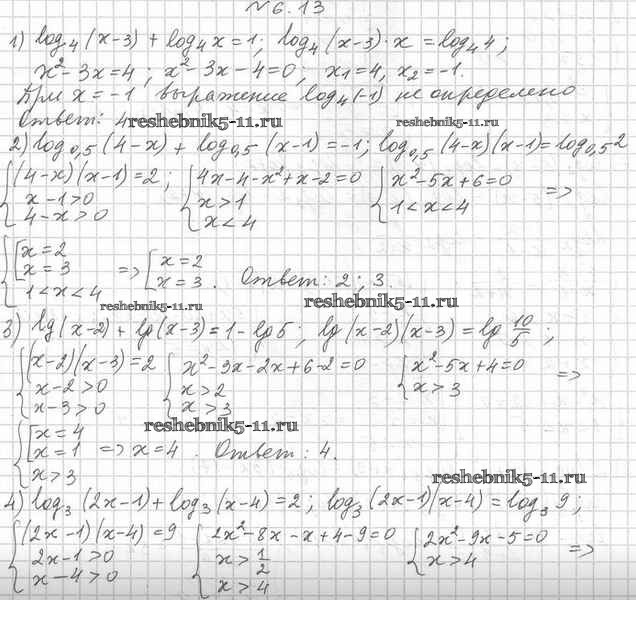 №6.13
1) log₄(x-3) + log₄x = 1; log₄(x-3)·x = log₄4;
x²-3x=4; x²-3x-4=0, x₁=4, x₂=-1.
При x=-1 выражение log₄(-1) не определено
Ответ: 4
reshebnik5-11.ru reshebnik5-11.ru
2) log₀,₅(4-x) + log₀,₅(x-1)=-1; log₀,₅(4-x)(x-1)=log₀,₅2
{(4-x)(x-1)=2; {4x-4-x²+x-2=0 {x²-5x+6=0 =>
x-1>0 x>1 1<x<4
4-x>0 x<4
{[x=2 => [x=2
x=3 x=3. Ответ: 2; 3.
1<x<4
reshebnik5-11.ru reshebnik5-11.ru
3) lg(x-2) + lg(x-3) = 1-lg5; lg(x-2)(x-3) = lg 10/5;
{(x-2)(x-3)=2 {x²-3x-2x+6-2=0 {x²-5x+4=0 =>
x-2>0 x>2 x>3
x-3>0 x>3
reshebnik5-11.ru
{[x=4
x=1 => x=4. Ответ: 4.
x>3
reshebnik5-11.ru
4) log₃(2x-1)+log₃(x-4)=2; log₃(2x-1)(x-4)=log₃9;
{(2x-1)(x-4)=9 {2x²-8x-x+4-9=0 {2x²-9x-5=0 =>
2x-1>0 x>1/2 x>4
x-4>0 x>4